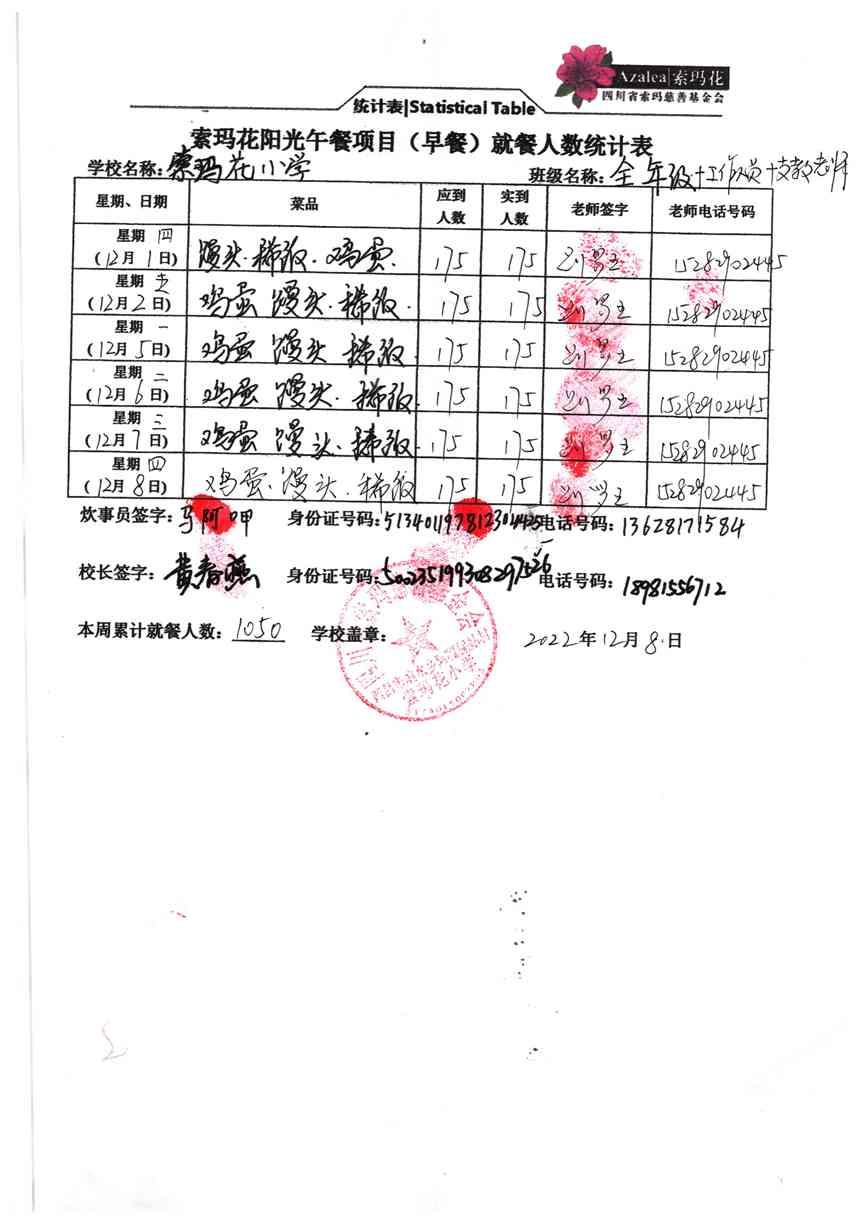 Azalea|索玛花
四川省索玛慈善基金会
统计表|Statistical Table
索玛花阳光午餐项目（早餐）就餐人数统计表
学校名称：索玛花小学 班级名称：全年级+工作人员+支教老师
星期、日期 菜品 应到人数 实到人数 老师签字 老师电话号码
星期 四
（12月 1日） 馒头.稀饭.鸡蛋. 175 175 15282902445
星期 五
（12月 2日） 鸡蛋 馒头.稀饭. 175 175 15282902445
星期 一
（12月 5日） 鸡蛋 馒头 稀饭 175 175 15282902445
星期 二
（12月 6日） 鸡蛋 馒头.稀饭. 175 175 15282902445
星期 三
（12月 7日） 鸡蛋 馒头.稀饭. 175 175 15282902445
星期 四
（12月 8日） 鸡蛋.馒头.稀饭 175 175 15282902445
炊事员签字：马阿呷 身份证号码： 电话号码：13628171584
校长签字：黄春燕 身份证号码：500235199308297526 电话号码：18981556712
本周累计就餐人数：1050 学校盖章： 2022年12月8日
索玛花小学